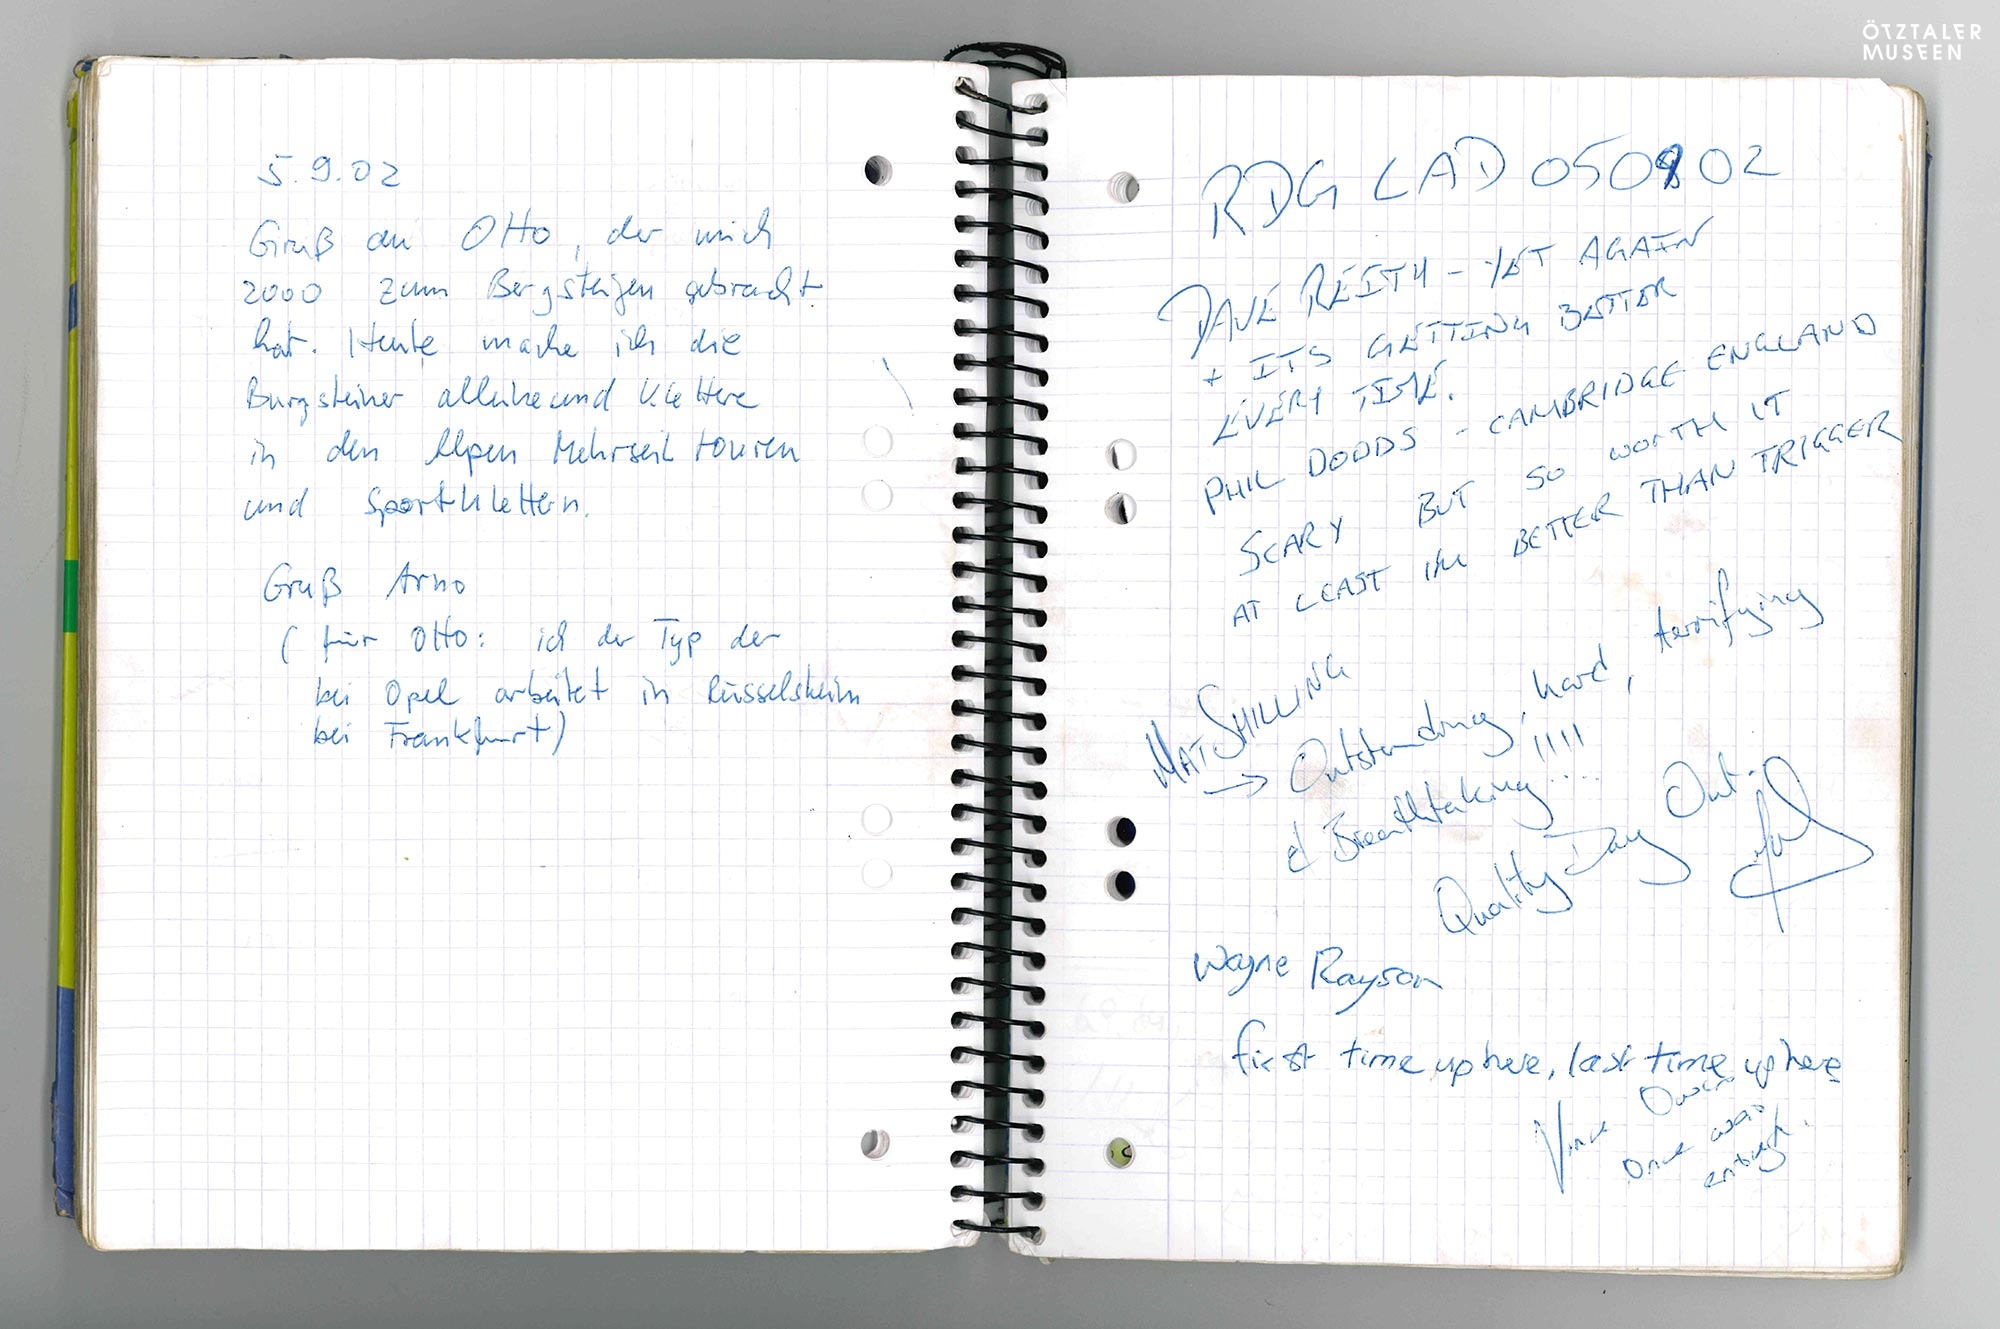 ÖTZTALER
MUSEEN
5.9.02
Gruß an Otto, der mich
2000 zum Bergsteigen gebracht
hat. Heute mache ich die
Burgsteiner alleine und klettere
in den Alpen Mehrseiltouren
und Sportklettern.
Gruß Arno
( für Otto: ich der Typ der
bei Opel arbeitet in Rüsselsheim
bei Frankfurt)
RDG LAD 050902
DAVE REITH - YET AGAIN
+ ITS GETTING BETTER
EVERY TIME.
PHIL DODDS - CAMBRIDGE ENGLAND
SCARY BUT SO WORTH IT
AT LEAST IM BETTER THAN TRIGGER
MAT SHILLING
→ Outstanding, hard, terrifying
& Breathtaking..... !!!!
Quality Day Out.
Wayne Rayson
first time up here, last time up here
Vince
once was
enough.